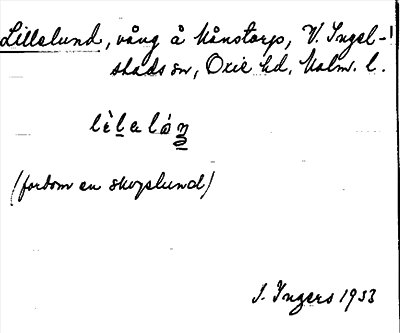 Lillelund, vång å Månstorp, V. Ingel-
stads sn, Oxie hd, Malm. l.
(fordom en skogslund)
I. Ingers 1933